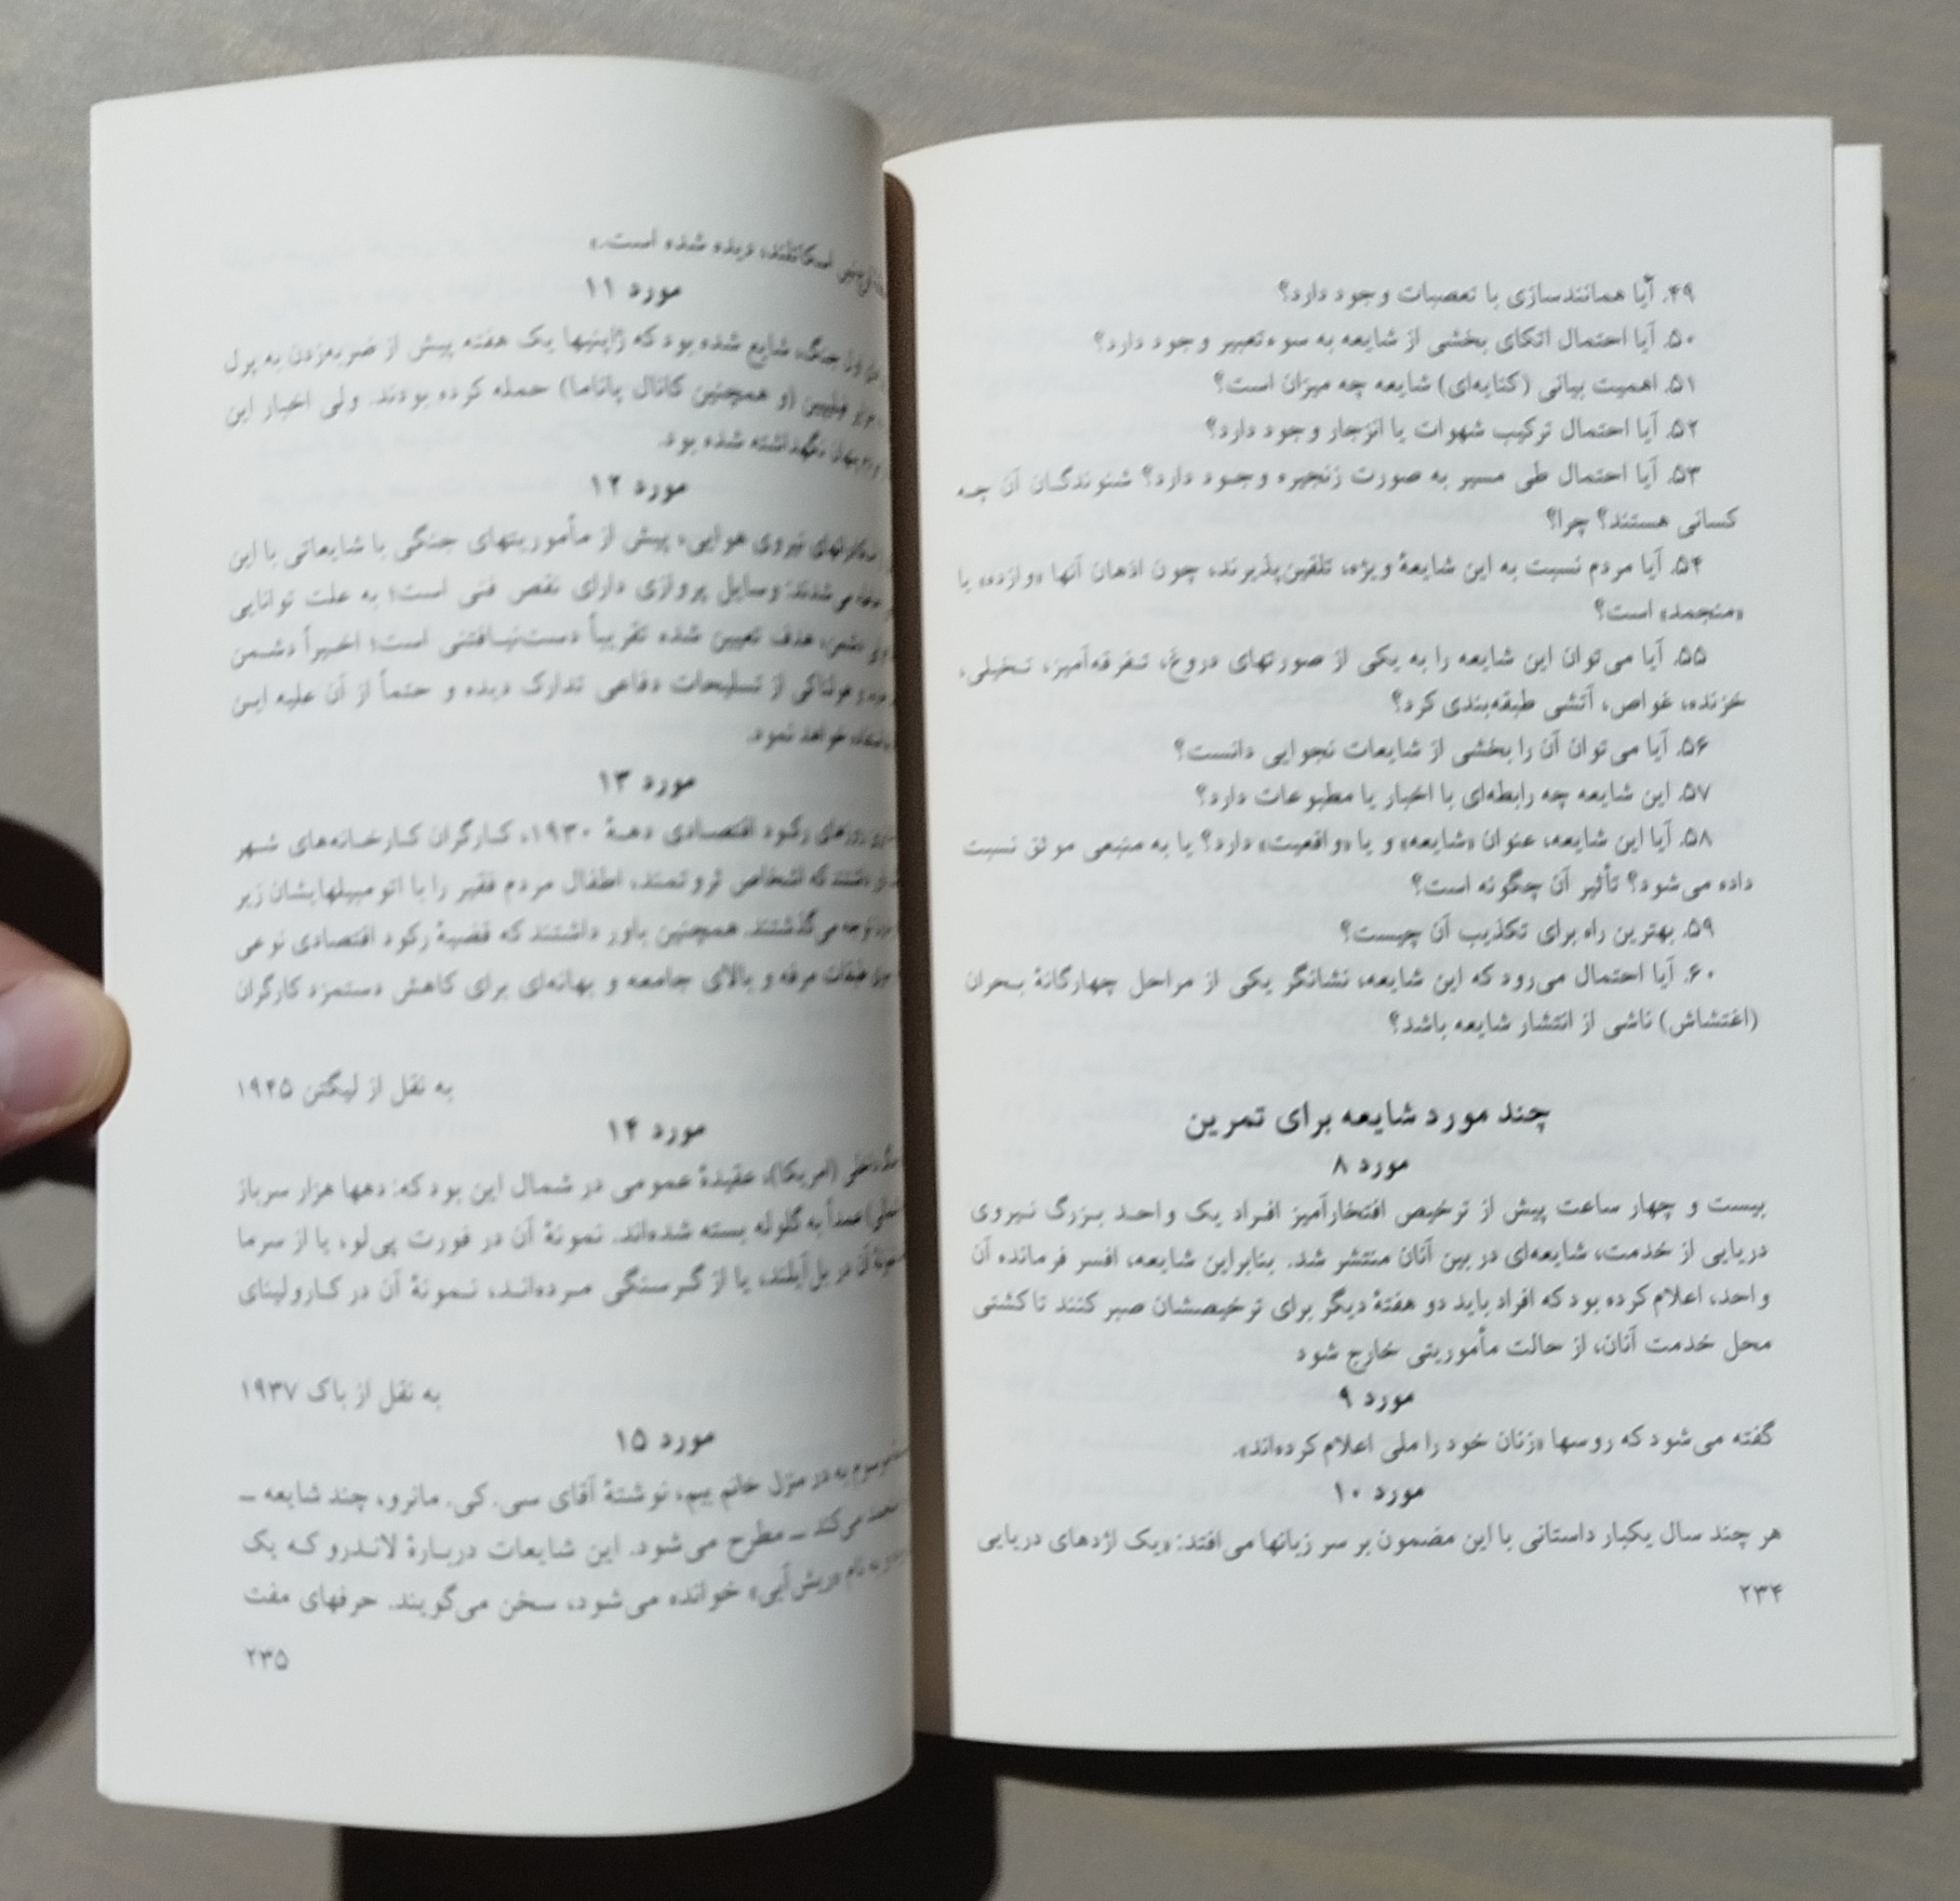 ۴۹. آیا همانندسازی با تعصبات وجود دارد؟
۵۰. آیا احتمال اتکای بخشی از شایعه به سوءتعبیر وجود دارد؟
۵۱. اهمیت بیانی (کنایه‌ای) شایعه چه میزان است؟
۵۲. آیا احتمال ترکیب شهوات یا انزجار وجود دارد؟
۵۳. آیا احتمال طی مسیر به صورت زنجیره وجود دارد؟ شنوندگان آن چه
کسانی هستند؟ چرا؟
۵۴. آیا مردم نسبت به این شایعهٔ ویژه، تلقین‌پذیرند، چون اذهان آنها «وازده» یا
«منجمد» است؟
۵۵. آیا می‌توان این شایعه را به یکی از صورتهای دروغ، تفرقه‌آمیز، تخیلی،
خزنده، غواص، آتشی طبقه‌بندی کرد؟
۵۶. آیا می‌توان آن را بخشی از شایعات نجوایی دانست؟
۵۷. این شایعه چه رابطه‌ای با اخبار یا مطبوعات دارد؟
۵۸. آیا این شایعه، عنوان «شایعه» و یا «واقعیت» دارد؟ یا به منبعی موثق نسبت
داده می‌شود؟ تأثیر آن چگونه است؟
۵۹. بهترین راه برای تکذیب آن چیست؟
۶۰. آیا احتمال می‌رود که این شایعه، نشانگر یکی از مراحل چهارگانهٔ بحران
(اغتشاش) ناشی از انتشار شایعه باشد؟
چند مورد شایعه برای تمرین
مورد ۸
بیست و چهار ساعت پیش از ترخیص افتخارآمیز افراد یک واحد بزرگ نیروی
دریایی از خدمت، شایعه‌ای در بین آنان منتشر شد. بنابراین شایعه، افسر فرمانده آن
واحد، اعلام کرده بود که افراد باید دو هفتهٔ دیگر برای ترخیصشان صبر کنند تا کشتی
محل خدمت آنان، از حالت مأموریتی خارج شود
مورد ۹
گفته می‌شود که روسها «زنان خود را ملی اعلام کرده‌اند».
مورد ۱۰
هر چند سال یکبار داستانی با این مضمون بر سر زبانها می‌افتد: «یک اژدهای دریایی
۲۳۴
اسکاتلند، دیده شده است.»
مورد ۱۱
جنگ، شایع شده بود که ژاپنیها یک هفته پیش از ضربه‌زدن به پرل
فیلیپین (و همچنین کانال پاناما) حمله کرده بودند. ولی اخبار این
نگهداشته شده بود.
مورد ۱۲
نیروی هوایی، پیش از مأموریتهای جنگی با شایعاتی با این
می‌شدند: وسایل پروازی دارای نقص فنی است؛ به علت توانایی
دشمن، هدف تعیین شده تقریباً دست‌نیافتنی است؛ اخیراً دشمن
هولناکی از تسلیحات دفاعی تدارک دیده و حتماً از آن علیه این
خواهد نمود.
مورد ۱۳
روزهای رکود اقتصادی دههٔ ۱۹۳۰، کارگران کارخانه‌های شهر
که اشخاص ثروتمند، اطفال مردم فقیر را با اتومبیلهایشان زیر
می‌گذشتند. همچنین باور داشتند که قضیهٔ رکود اقتصادی نوعی
طبقات مرفه و بالای جامعه و بهانه‌ای برای کاهش دستمزد کارگران
به نقل از لیگتن ۱۹۴۵
مورد ۱۴
داخلی (امریکا)، عقیدهٔ عمومی در شمال این بود که: دهها هزار سرباز
عمداً به گلوله بسته شده‌اند. نمونهٔ آن در فورت پی‌لو، یا از سرما
آن در بل‌آیلند، یا از گرسنگی مرده‌اند، نمونهٔ آن در کارولینای
به نقل از باک ۱۹۳۷
مورد ۱۵
در منزل خانم بیم، نوشتهٔ آقای سی. کی. مانرو، چند شایعه ـ
می‌کند ـ مطرح می‌شود. این شایعات دربارهٔ لاندرو که یک
به نام «ریش‌آبی» خوانده می‌شود، سخن می‌گویند. حرفهای مفت
۲۳۵